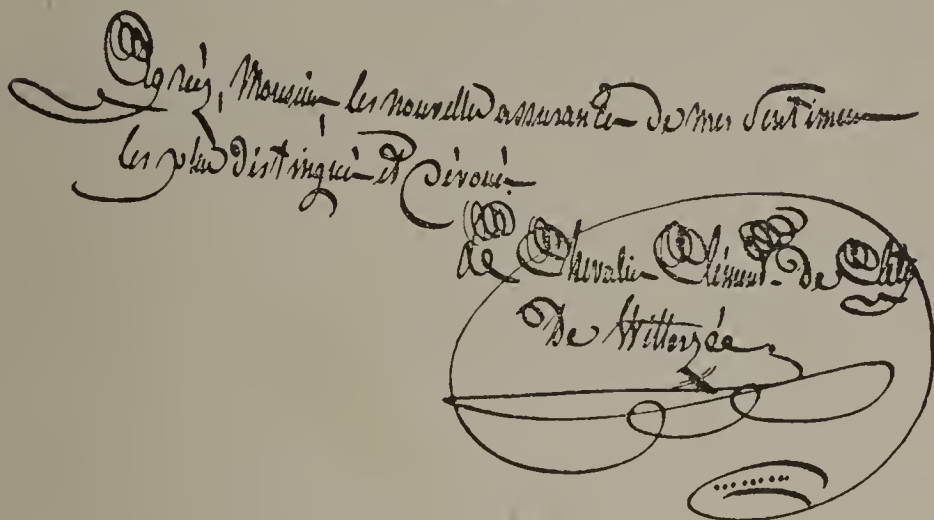 Agréez, Monsieur les nouvelles assurances de mes sentimens
les plus distingués et dévoués.
Le Chevalier Clément de
De Witterzée.